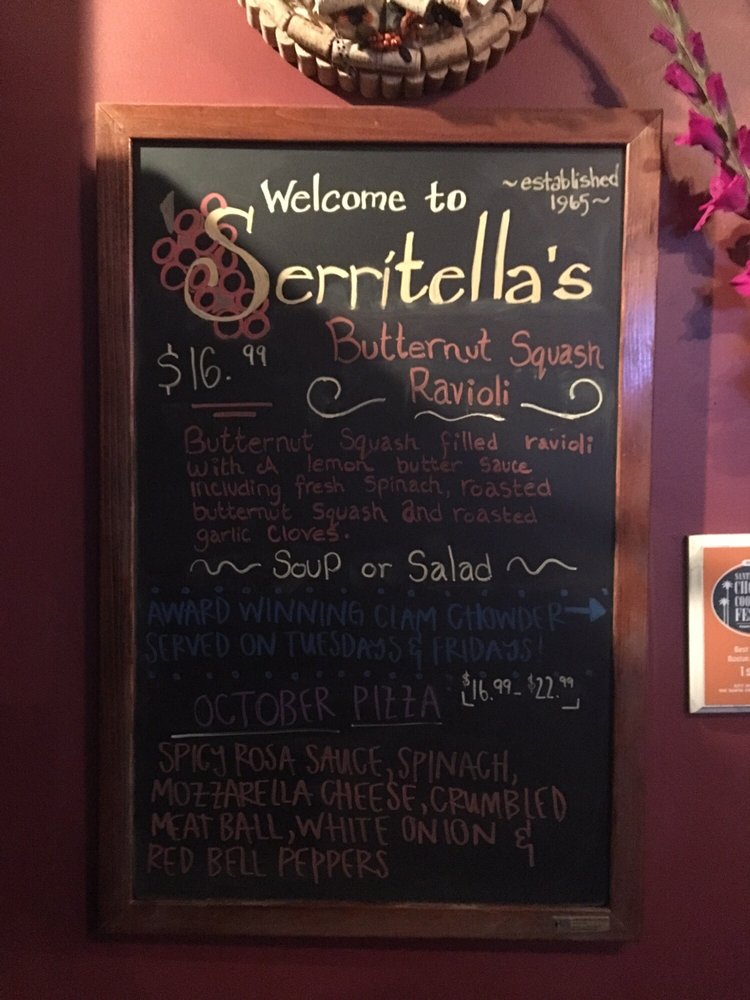 Welcome to
~established
1965~
Serritella's
$16.99
Butternut Squash
Ravioli
Butternut Squash filled ravioli
with A lemon butter sauce
including fresh Spinach, roasted
butternut Squash and roasted
garlic Cloves.
~ Soup or Salad ~
AWARD WINNING CLAM CHOWDER →
SERVED ON TUESDAYS & FRIDAYS!
OCTOBER PIZZA
$16.99 - $22.99
SPICY ROSA SAUCE, SPINACH,
MOZZARELLA CHEESE, CRUMBLED
MEATBALL, WHITE ONION &
RED BELL PEPPERS